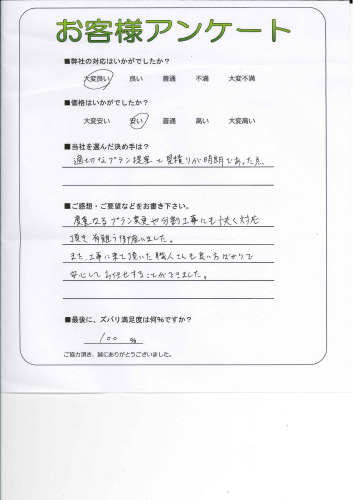 お客様アンケート
■弊社の対応はいかがでしたか？
大変良い 良い 普通 不満 大変不満
■価格はいかがでしたか？
大変安い 安い 普通 高い 大変高い
■当社を選んだ決め手は？
適切なプラン提案と見積りが明朗であった点
■ご感想・ご要望などをお書き下さい。
度重なるプラン変更や分割工事にも快く対応
頂き有難う御座いました。
また、工事に来て頂いた職人さんも良い方ばかりで
安心してお任せすることができました。
■最後に、ズバリ満足度は何％ですか？
100 %
ご協力頂き、誠にありがとうございました。